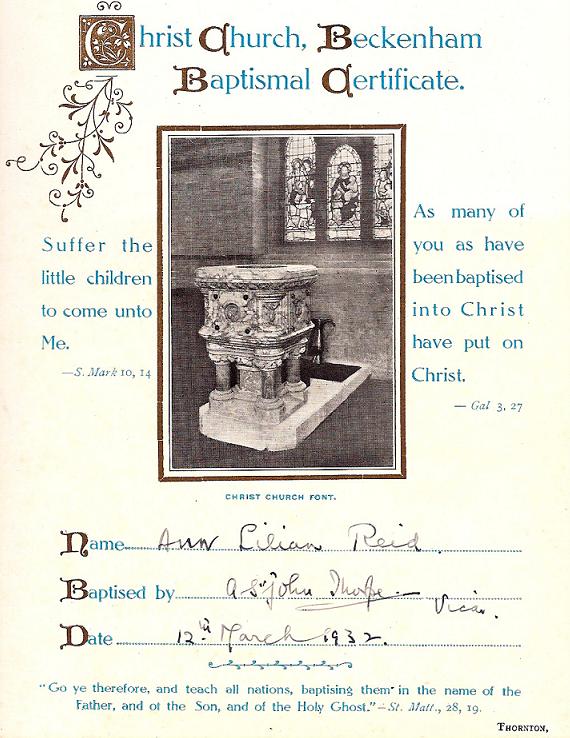 Christ Church, Beckenham
Baptismal Certificate.
Suffer the
little children
to come unto
Me.
—S. Mark 10, 14
As many of
you as have
been baptised
into Christ
have put on
Christ.
— Gal 3, 27
CHRIST CHURCH FONT.
Name Ann Lilian Reid.
Baptised by A St John Thorpe Vicar.
Date 12th March 1932.
"Go ye therefore, and teach all nations, baptising them in the name of the
Father, and of the Son, and of the Holy Ghost."—St. Matt., 28, 19.
THORNTON,